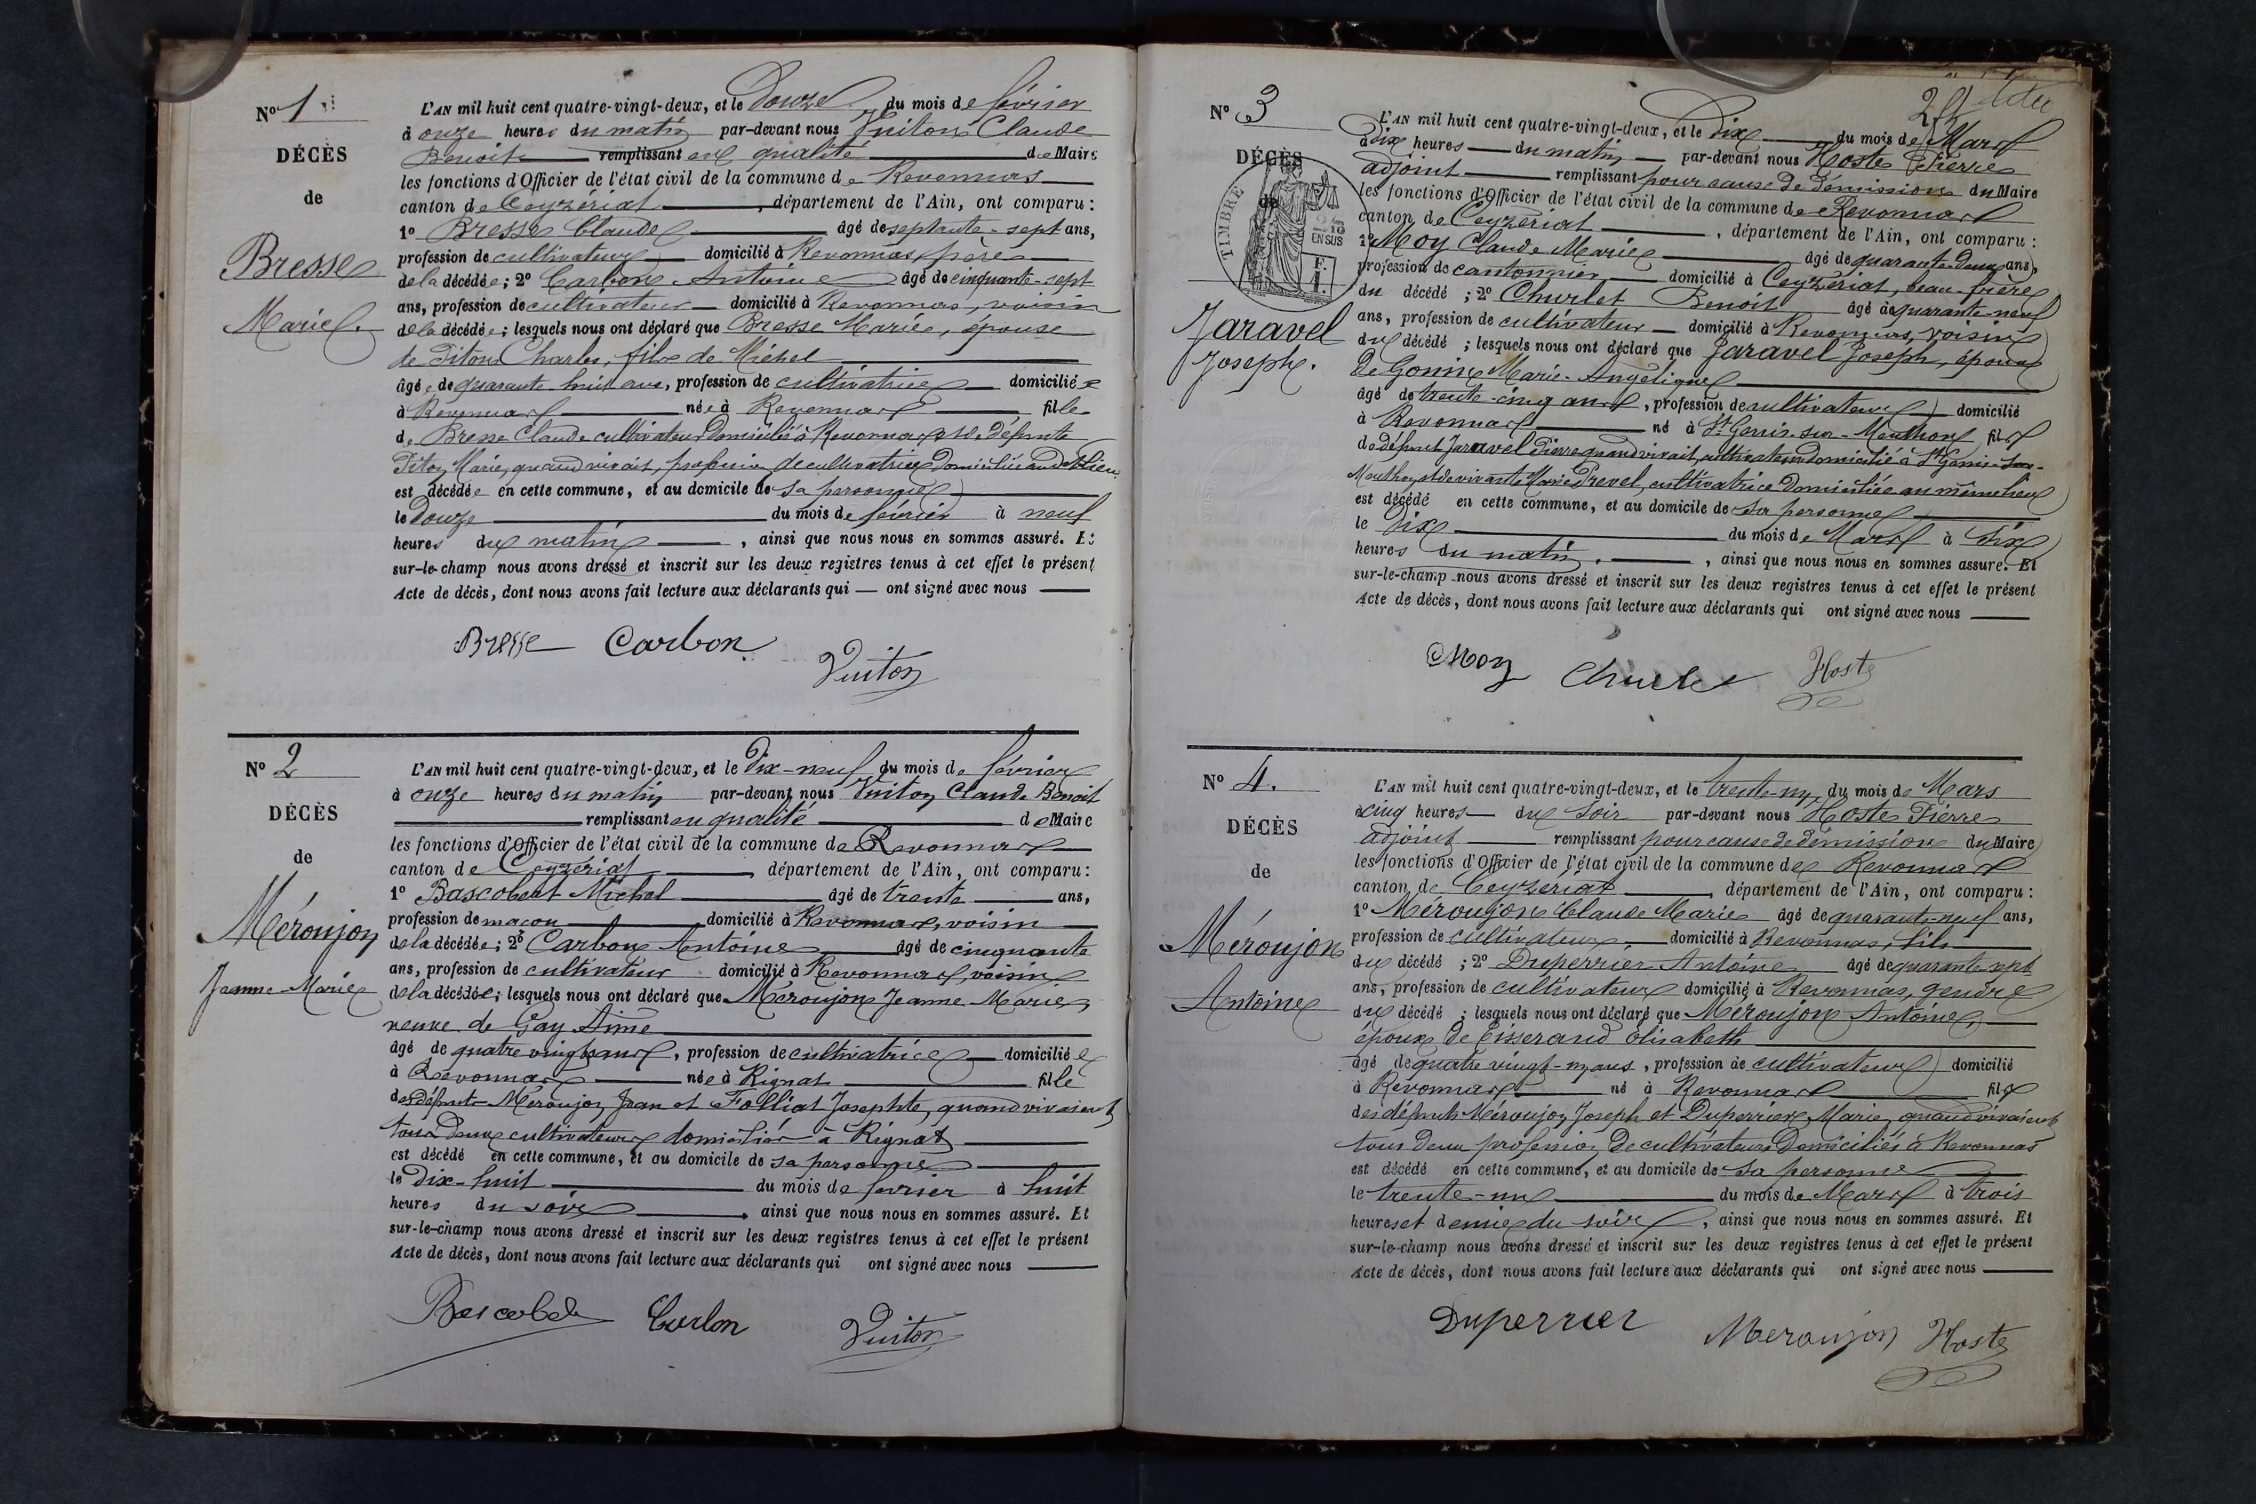 N° 1
DÉCÈS
de
Bresse
Marie
L'AN mil huit cent quatre-vingt-deux, et le Douze du mois de février
à onze heures du matin par-devant nous Vuiton Claude
Benoit remplissant en qualité de Maire
les fonctions d'Officier de l'état civil de la commune de Revonnas
canton de Ceyzériat, département de l'Ain, ont comparu :
1° Bresse Claude âgé de septante-sept ans,
profession de cultivateur domicilié à Revonnas, père
de la décédée ; 2° Carbon Antoine âgé de cinquante-sept
ans, profession de cultivateur domicilié à Revonnas, voisin
de la décédée ; lesquels nous ont déclaré que Bresse Marie, épouse
de Piton Charles, fils de Michel
âgée de quarante huit ans, profession de cultivatrice domiciliée
à Revonnas née à Revonnas fille
de Bresse Claude cultivateur domicilié à Revonnas et de défunte
Piton Marie, quand vivait, profession de cultivatrice domiciliée au dit lieu
est décédée en cette commune, et au domicile de sa personne
le Douze du mois de février à neuf
heures du matin, ainsi que nous nous en sommes assuré. Et
sur-le-champ nous avons dressé et inscrit sur les deux registres tenus à cet effet le présent
Acte de décès, dont nous avons fait lecture aux déclarants qui — ont signé avec nous
Bresse Carbon
Vuiton
N° 2
DÉCÈS
de
Méroujon
Jeanne-Marie
L'AN mil huit cent quatre-vingt-deux, et le Dix-neuf du mois de février
à onze heures du matin par-devant nous Vuiton Claude Benoit
remplissant en qualité de Maire
les fonctions d'Officier de l'état civil de la commune de Revonnas
canton de Ceyzériat, département de l'Ain, ont comparu :
1° Bascobert Michel âgé de trente ans,
profession de maçon domicilié à Revonnas, voisin
de la décédée ; 2° Carbon Antoine âgé de cinquante
ans, profession de cultivateur domicilié à Revonnas, voisin
de la décédée ; lesquels nous ont déclaré que Méroujon Jeanne-Marie,
veuve de Gay Aimé
âgé de quatre vingts ans, profession de cultivatrice domiciliée
à Revonnas née à Rignat fille
des défunts Méroujon Jean et Folliat Josephte, quand vivaient
tous deux cultivateurs domiciliés à Rignat
est décédé en cette commune, et au domicile de sa personne
le Dix-huit du mois de février à huit
heures du soir, ainsi que nous nous en sommes assuré. Et
sur-le-champ nous avons dressé et inscrit sur les deux registres tenus à cet effet le présent
Acte de décès, dont nous avons fait lecture aux déclarants qui ont signé avec nous
Carbon Vuiton
N° 3
DÉCÈS
de
TIMBRE
EN SUS
F.
1.
Jaravel
Joseph.
L'AN mil huit cent quatre-vingt-deux, et le Dix du mois de Mars
à Dix heures du matin par-devant nous Hoste Pierre
adjoint remplissant pour cause de démission du Maire
les fonctions d'Officier de l'état civil de la commune de Revonnas
canton de Ceyzériat, département de l'Ain, ont comparu :
1° Moy Claude Marie âgé de quarante-deux ans,
profession de cantonnier domicilié à Ceyzériat, beau-frère
du décédé ; 2° Churlet Benoit âgé de quarante-neuf
ans, profession de cultivateur domicilié à Revonnas, voisin
du décédé ; lesquels nous ont déclaré que Jaravel Joseph, époux
De Gonin Marie-Angélique
âgé de trente-cinq ans, profession de cultivateur domicilié
à Revonnas né à St Genis-sur-Menthon fils
de défunt Jaravel Pierre quand vivait, cultivateur domicilié à St Genis-sur-
Menthon et de vivante Marie Prevel, cultivatrice domiciliée au même lieu
est décédé en cette commune, et au domicile de sa personne
le Dix du mois de Mars à six
heures du matin, ainsi que nous nous en sommes assuré. Et
sur-le-champ nous avons dressé et inscrit sur les deux registres tenus à cet effet le présent
Acte de décès, dont nous avons fait lecture aux déclarants qui ont signé avec nous
Moy Hoste
N° 4.
DÉCÈS
de
Méroujon
Antoine
L'AN mil huit cent quatre-vingt-deux, et le trente-un du mois de Mars
à cinq heures du soir par-devant nous Hoste Pierre
adjoint remplissant pour cause de démission du Maire
les fonctions d'Officier de l'état civil de la commune de Revonnas
canton de Ceyzériat, département de l'Ain, ont comparu :
1° Méroujon Claude Marie âgé de quarante-neuf ans,
profession de cultivateur domicilié à Revonnas, fils
du décédé ; 2° Duperrier Antoine âgé de quarante-sept
ans, profession de cultivateur domicilié à Revonnas, gendre
du décédé ; lesquels nous ont déclaré que Méroujon Antoine,
époux de Tisserand Elisabeth
âgé de quatre vingt-un ans, profession de cultivateur domicilié
à Revonnas né à Revonnas fils
des défunts Méroujon Joseph et Duperrier Marie, quand vivaient
tous deux profession de cultivateurs Domiciliés à Revonnas
est décédé en cette commune, et au domicile de sa personne
le trente-un du mois de Mars à trois
heures et demie du soir, ainsi que nous nous en sommes assuré. Et
sur-le-champ nous avons dressé et inscrit sur les deux registres tenus à cet effet le présent
Acte de décès, dont nous avons fait lecture aux déclarants qui ont signé avec nous
Duperrier Meroujon Hoste